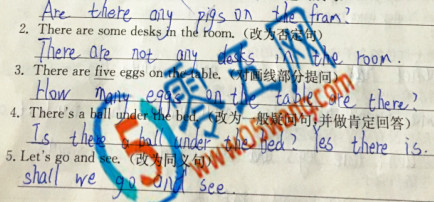 Are there any pigs on the fram?
2. There are some desks in the room. (改为否定句)
There are not any desks in the room.
3. There are five eggs on the table. (对画线部分提问)
How many eggs on the table are there?
4. There's a ball under the bed. (改为一般疑问句,并做肯定回答)
Is there a ball under the bed? Yes there is.
5. Let's go and see. (改为同义句)
shall we go and see.
5 零五网
www.05wang.com